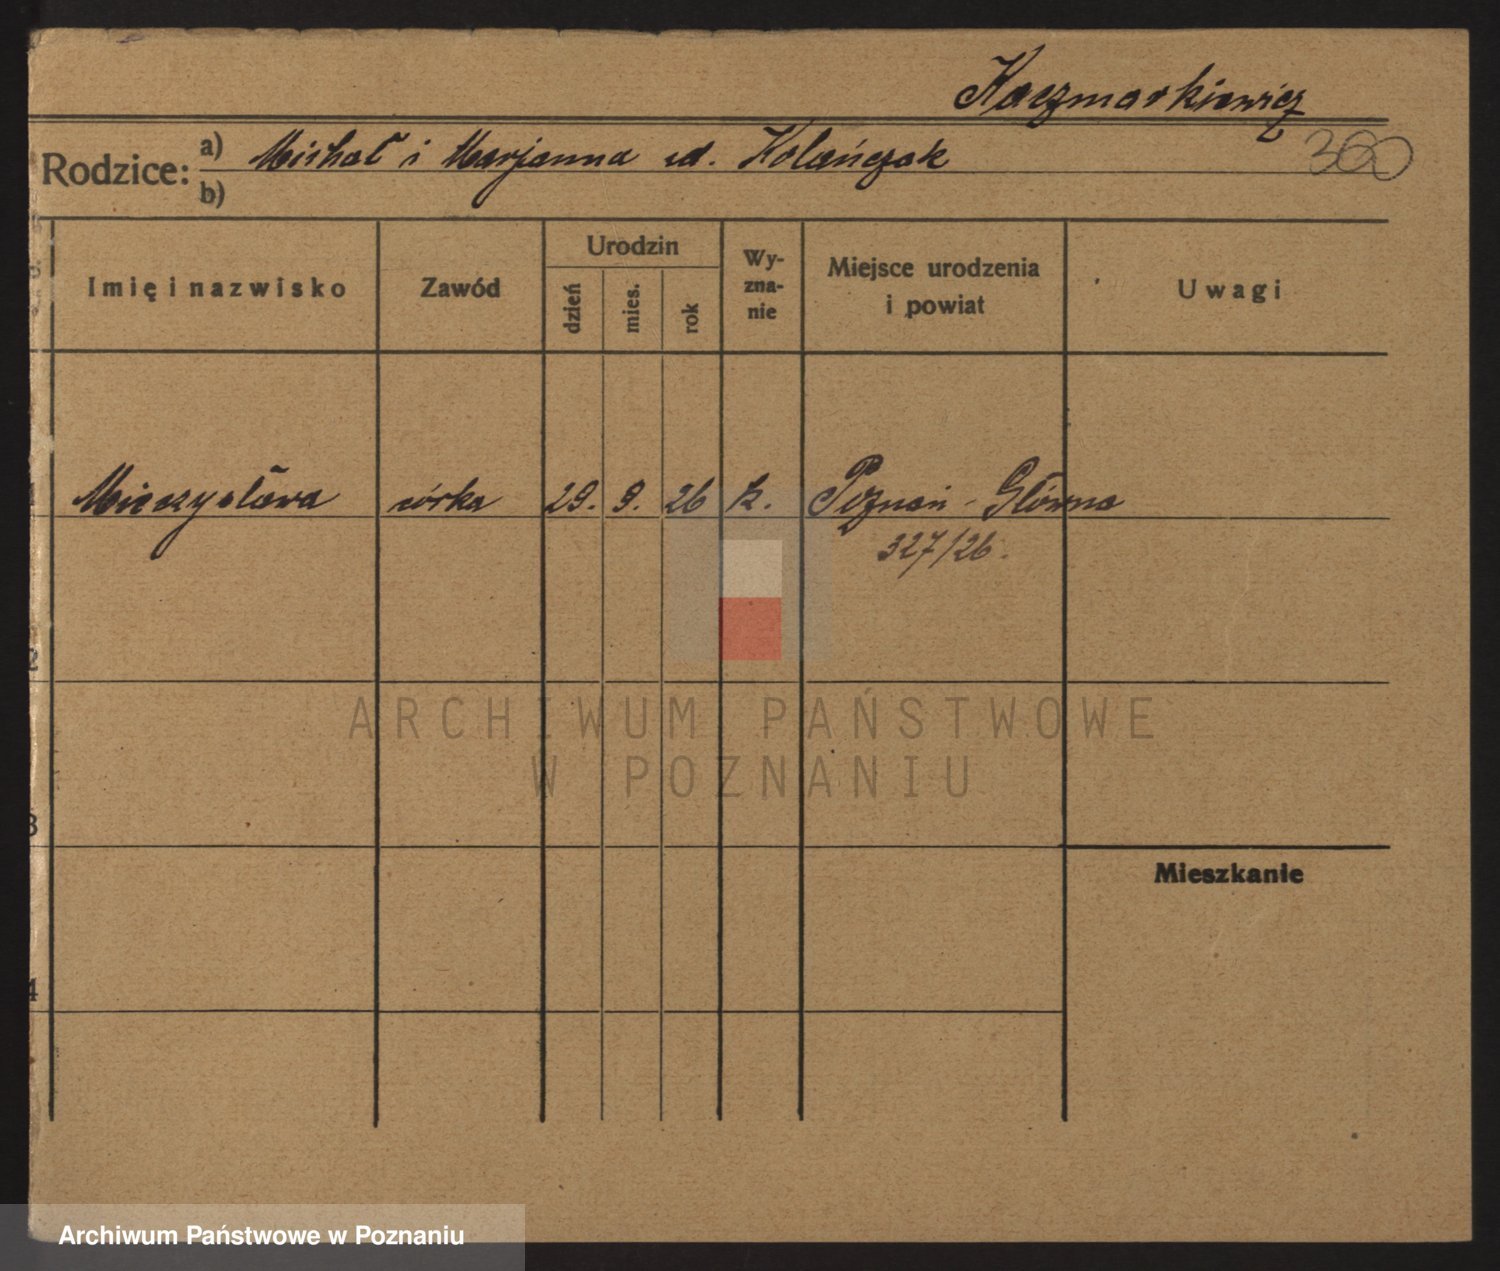 Kaczmarkiewicz
360
Rodzice: a) Michał i Marjanna ud. Kolańczak
b)
Imię i nazwisko
Zawód
Urodzin
dzień
mies.
rok
Wy-
zna-
nie
Miejsce urodzenia
i powiat
Uwagi
1 Mieczysława córka 29. 9. 26 k. Poznań - Główna
327/26.
2
ARCHIWUM PAŃSTWOWE
W POZNANIU
3
Mieszkanie
4
Archiwum Państwowe w Poznaniu